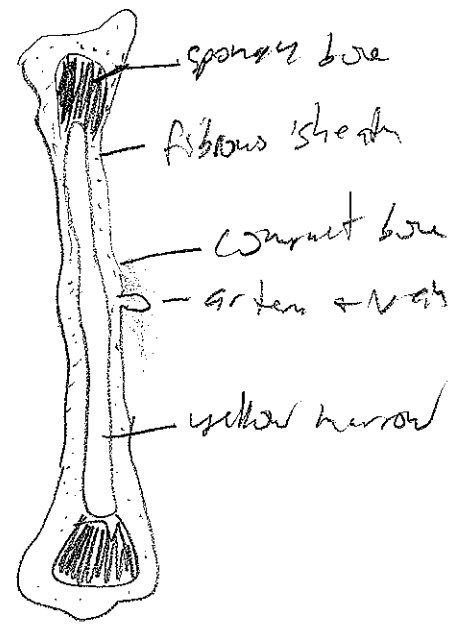 spongy bone
fibrous sheath
compact bone
artery + vein
yellow marrow